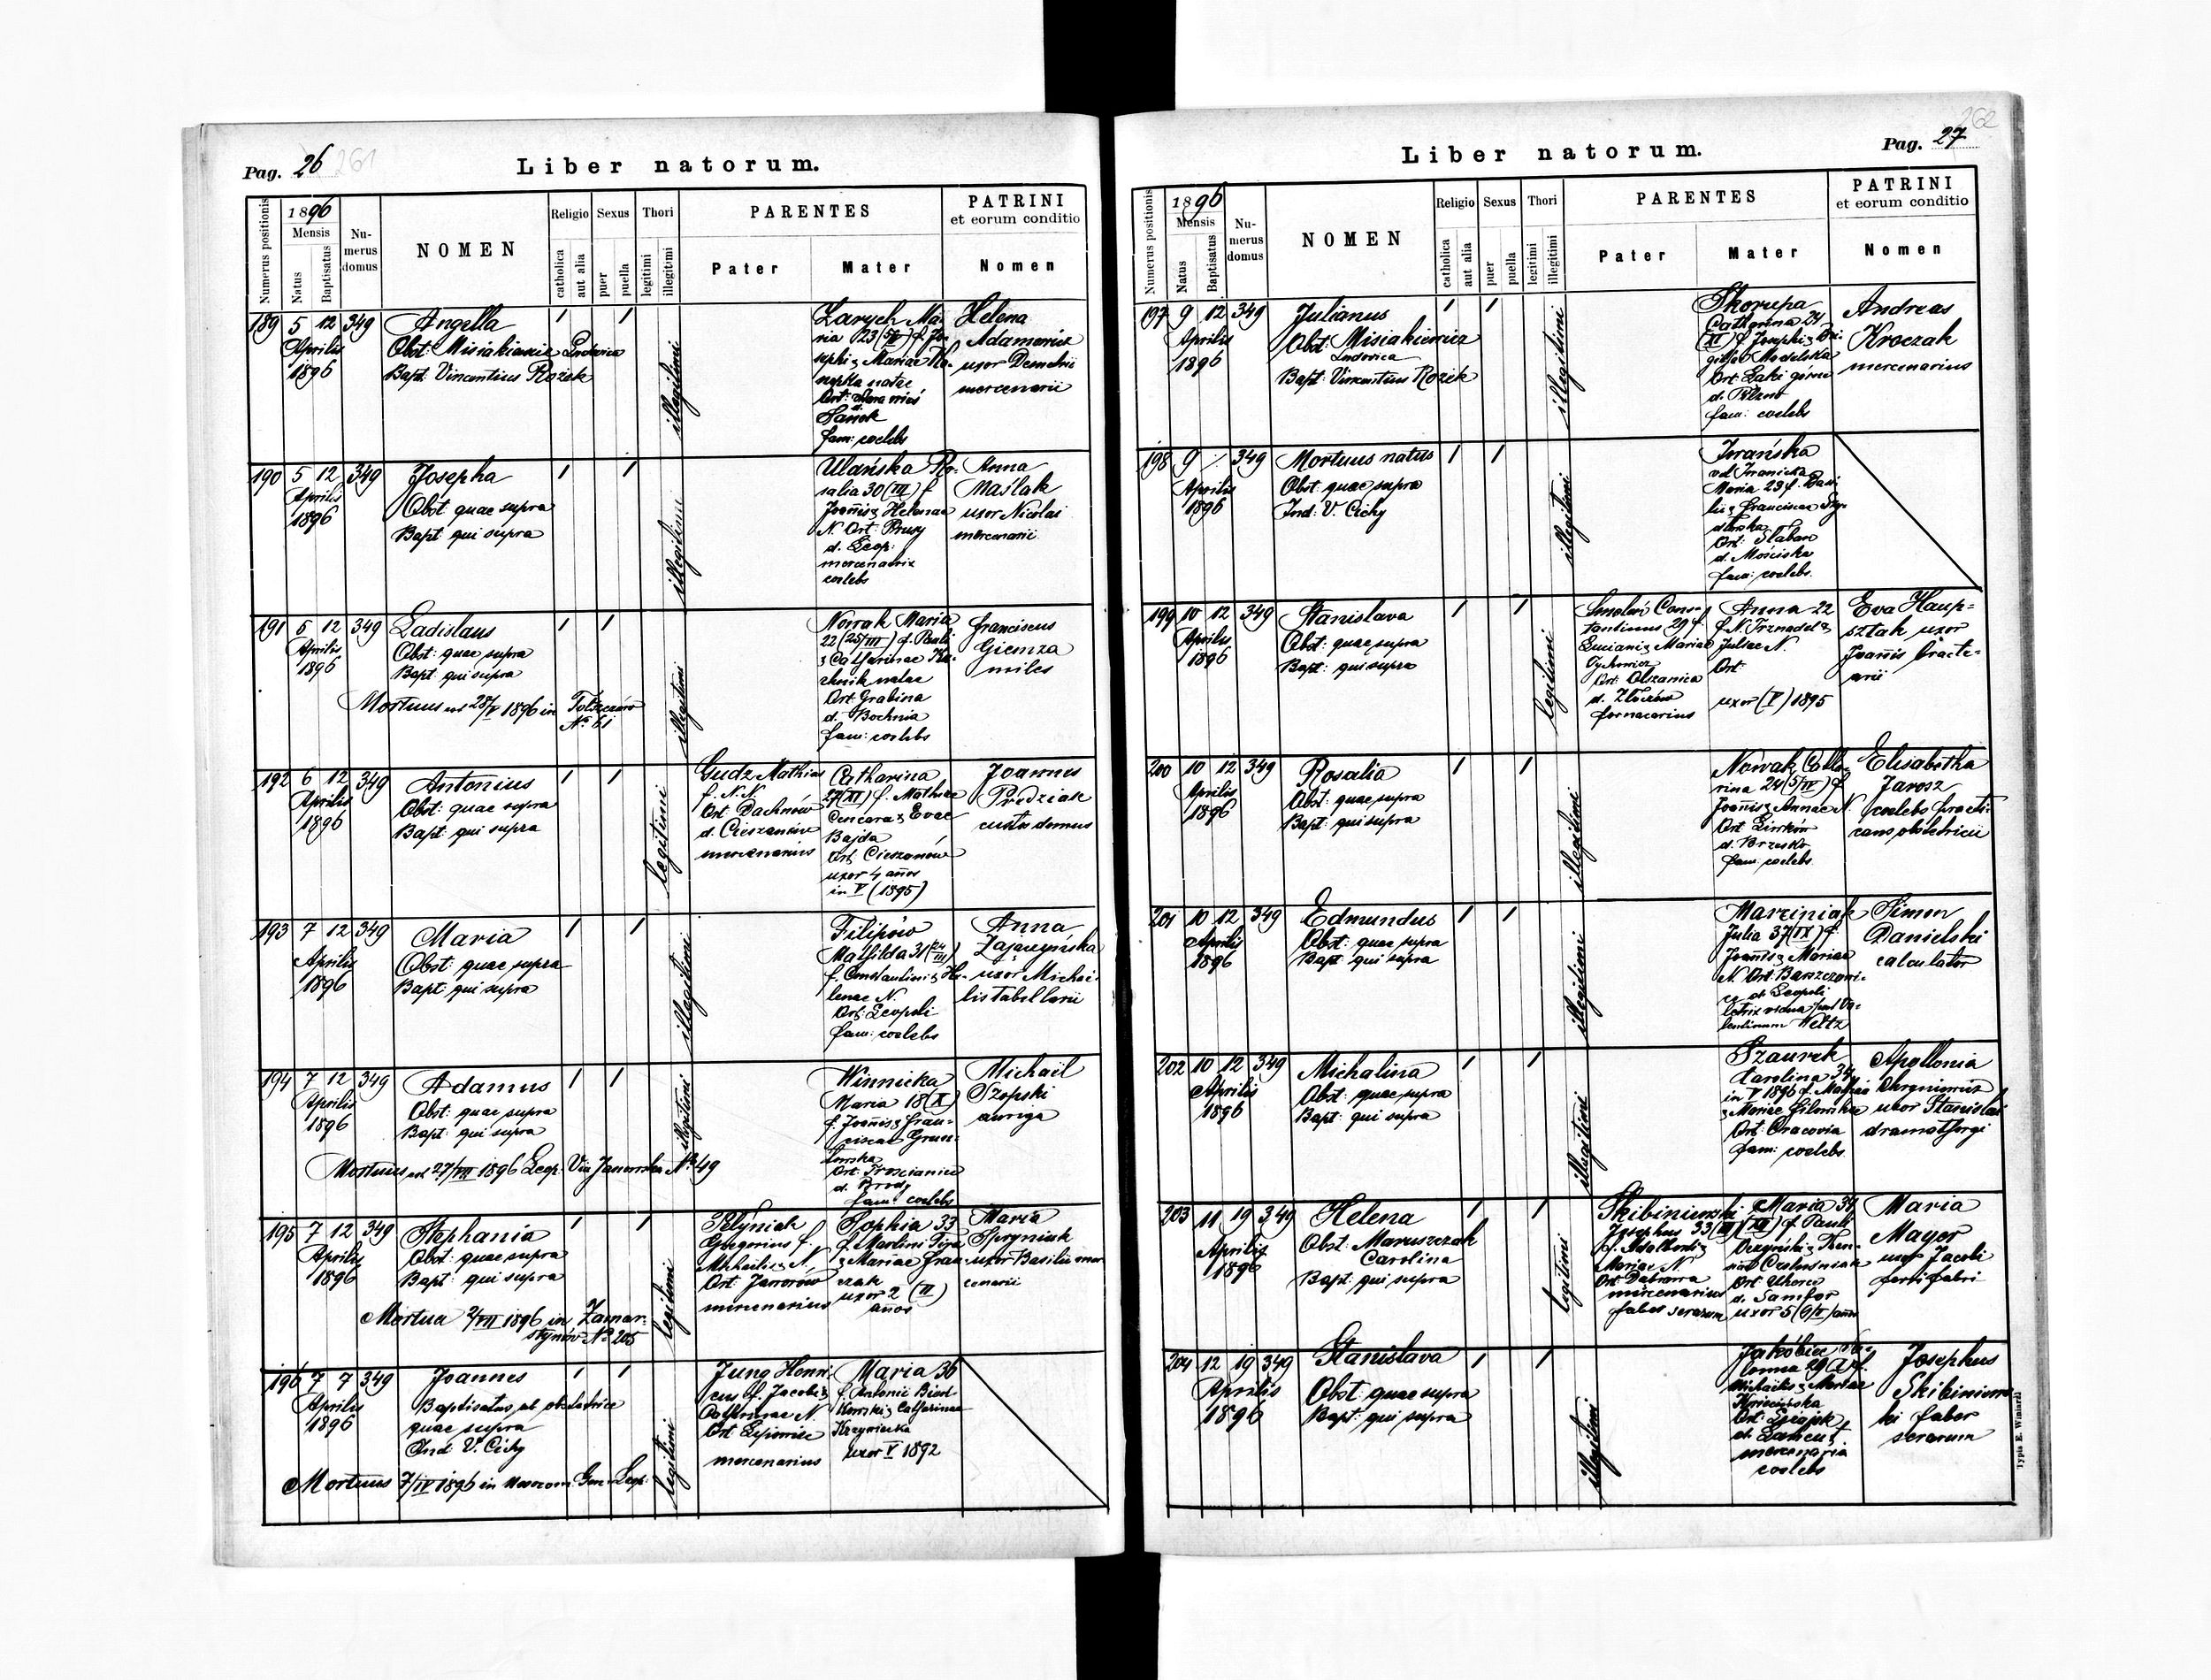 Pag. 26 261
Liber natorum.
Numerus positionis
1896
Mensis
Natus
Baptisatus
Nu-
merus
domus
NOMEN
Religio
catholica
aut alia
Sexus
puer
puella
Thori
legitimi
illegitimi
PARENTES
Pater
Mater
PATRINI
et eorum conditio
Nomen
189 5 12 349 Angella
Aprilis
1896
Obst: Misiakiewicz Ludovica
Bapt: Vincentius Rozek
illegitimi
Zarych Ma-
ria 23
sephi & Mariae
natae
Ort:
Sanok
fam: coelebs
Helena
Adamowicz
uxor Demetrii
mercenarii
190 5 12 349 Josepha
Aprilis
1896
Obst: quae supra
Bapt: qui supra
illegitimi
Ulańska Ro-
salia 30 (III) f
Joannis & Helenae
N. Ort: Prusy
d. Leop:
mercenatrix
coelebs
Anna
Maślak
uxor Nicolai
mercenarii
191 5 12 349 Ladislaus
Aprilis
1896
Obst: quae supra
Bapt: qui supra
Mortuus est 28/V 1896 in Tołszczów
No 61
illegitimi
Nowak Maria
22 (25/III) f. Pauli
& Catharinae
natae
Ort Grabina
d. Bochnia
fam: coelebs
Franciscus
Giemza
miles
192 6 12 349 Antonius
Aprilis
1896
Obst: quae supra
Bapt: qui supra
legitimi
Gudz Mathias
f. N.N.
Ort Dachnów
d. Cieszanów
mercenarius
Catharina
27 (XI) f. Mathiae
Cencara & Evae
Bajda
Ort: Cieszanów
uxor 4 años
in V (1895)
Joannes
Prędziak
custos domus
193 7 12 349 Maria
Aprilis
1896
Obst: quae supra
Bapt: qui supra
illegitimi
Filipów
Mathilda 31 (24/III)
f. Constantini & He-
lenae N.
Ort: Leopoli
fam: coelebs
Anna
Zajączyńska
uxor Michae-
lis tabellarii
194 7 12 349 Adamus
Aprilis
1896
Obst: quae supra
Bapt: qui supra
Mortuus est 27/VII 1896 Leop. Via Janowska No 49
illegitimi
Winnicka
Maria 18 (X)
f. Joannis & Fran-
ciscae
Ort: Trościaniec
d. Brody
fam: coelebs
Michael
Szopski
auriga
195 7 12 349 Stephania
Aprilis
1896
Obst: quae supra
Bapt: qui supra
Mortua 2/VII 1896 in Zamar-
stynów No 205
legitimi
Pełyniak
Gregorius f.
Michaelis & N.
Ort Janowów
mercenarius
Sophia 33
f. Martini
& Mariae
uxor 2 (II)
años
Maria
Spryniak
uxor Basilii mer-
cenarii
196 7 7 349 Joannes
Aprilis
1896
Baptisatus ab obstetrice
quae supra
Ind V. Cichy
Mortuus 7/IV 1896 in nosocom: Gen: Leop:
legitimi
Jung Henri-
cus f. Jacobi &
Catharinae N.
Ort
mercenarius
Maria 36
f. Antonii
& Catharinae
uxor V 1892
262
Pag. 27
Liber natorum.
Numerus positionis
1896
Mensis
Natus
Baptisatus
Nu-
merus
domus
NOMEN
Religio
catholica
aut alia
Sexus
puer
puella
Thori
legitimi
illegitimi
PARENTES
Pater
Mater
PATRINI
et eorum conditio
Nomen
197 9 12 349 Julianus
Aprilis
1896
Obst: Misiakiewicz
Ludovica
Bapt: Vincentius Rozek
illegitimi
Skorupa
Catharina 24
(XI) f Josephi & Bri-
gittae
Ort: Łęki górne
d. Pilzno
fam: coelebs
Andreas
Kroczak
mercenarius
198 9 349 Mortuus natus
Aprilis
1896
Obst: quae supra
Ind: V. Cichy
illegitimi
Irańska
vel Iranicka
Maria 23 f.
& Franciscae
Ort:
d. Mościska
fam: coelebs
199 10 12 349 Stanislava
Aprilis
1896
Obst: quae supra
Bapt: qui supra
legitimi
Smolin Cons-
tantinus 29 f.
Luciani & Mariae
Ort: Olszanica
d. Złoczów
fornacarius
Anna 22
f. N. Trznadel &
Juliae N.
Ort
uxor (V) 1895
Eva Haup-
sztak uxor
Joannis bracte-
arii
200 10 12 349 Rosalia
Aprilis
1896
Obst: quae supra
Bapt: qui supra
illegitimi
Nowak Catha-
rina 24 (5/IV) f.
Joannis & Annae N.
Ort
d. Brzesko
fam: coelebs
Elisabetha
Jarosz
coelebs practi-
cans obstetricii
201 10 12 349 Edmundus
Aprilis
1896
Obst: quae supra
Bapt: qui supra
illegitimi
Marciniak
Julia 37 (IX) f.
Joannis & Mariae
N. Ort Barszczowi-
ce d. Leopoli
vidua post Va-
lentinum Weltz
Simon
Danielski
calculator
202 10 12 349 Michalina
Aprilis
1896
Obst: quae supra
Bapt: qui supra
illegitimi
Szaurek
Carolina 34
in V 1896 f. Mathiae
& Mariae Gilowska
Ort: Cracovia
fam: coelebs
Apollonia
Ohryniewicz
uxor Stanislai
dramathurgi
203 11 19 349 Helena
Aprilis
1896
Obst: Maruszczak
Carolina
Bapt: qui supra
legitimi
Skibiniewski
Josephus 33 (III)
f. Adalberti &
Mariae N
Ort Dąbrowa
mercenarius
faber serarum
Maria 34
(XII) f Pauli
Ort Uherce
d. Sambor
uxor 5 (6/II) años
Maria
Mayer
uxor Jacobi
ferri fabri
204 12 19 349 Stanislava
Aprilis
1896
Obst: quae supra
Bapt: qui supra
illegitimi
Jakóbiec He-
lenna 29
Michaelis & Mariae
Ort: Leżajsk
d. Łańcut
mercenaria
coelebs
Josephus
Skibiniews-
ki faber
serarum
Typis E. Winiarz